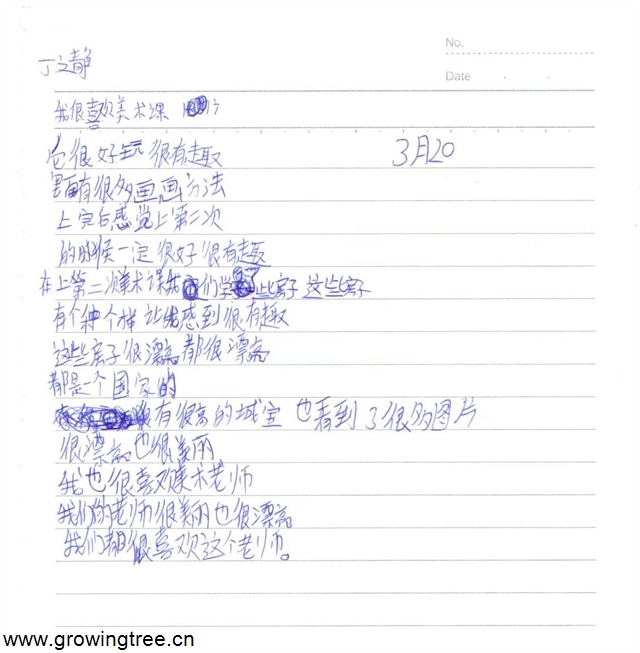 No.
丁文静
Date
我很喜欢美术课
它很好玩 很有趣 3月20
里面有很多画画方法
上完后感觉上第二次
的时候一定很好很有趣
在上第二次美术课我们学了些房子 这些房子
有个种个样 让我感到很有趣
这些房子很漂亮都很漂亮
都是一个国家的
有很高的城宝 也看到了很多图片
很漂亮也很美丽
我也很喜欢美术老师
我们的老师很美丽也很漂亮
我们都很喜欢这个老师。
www.growingtree.cn